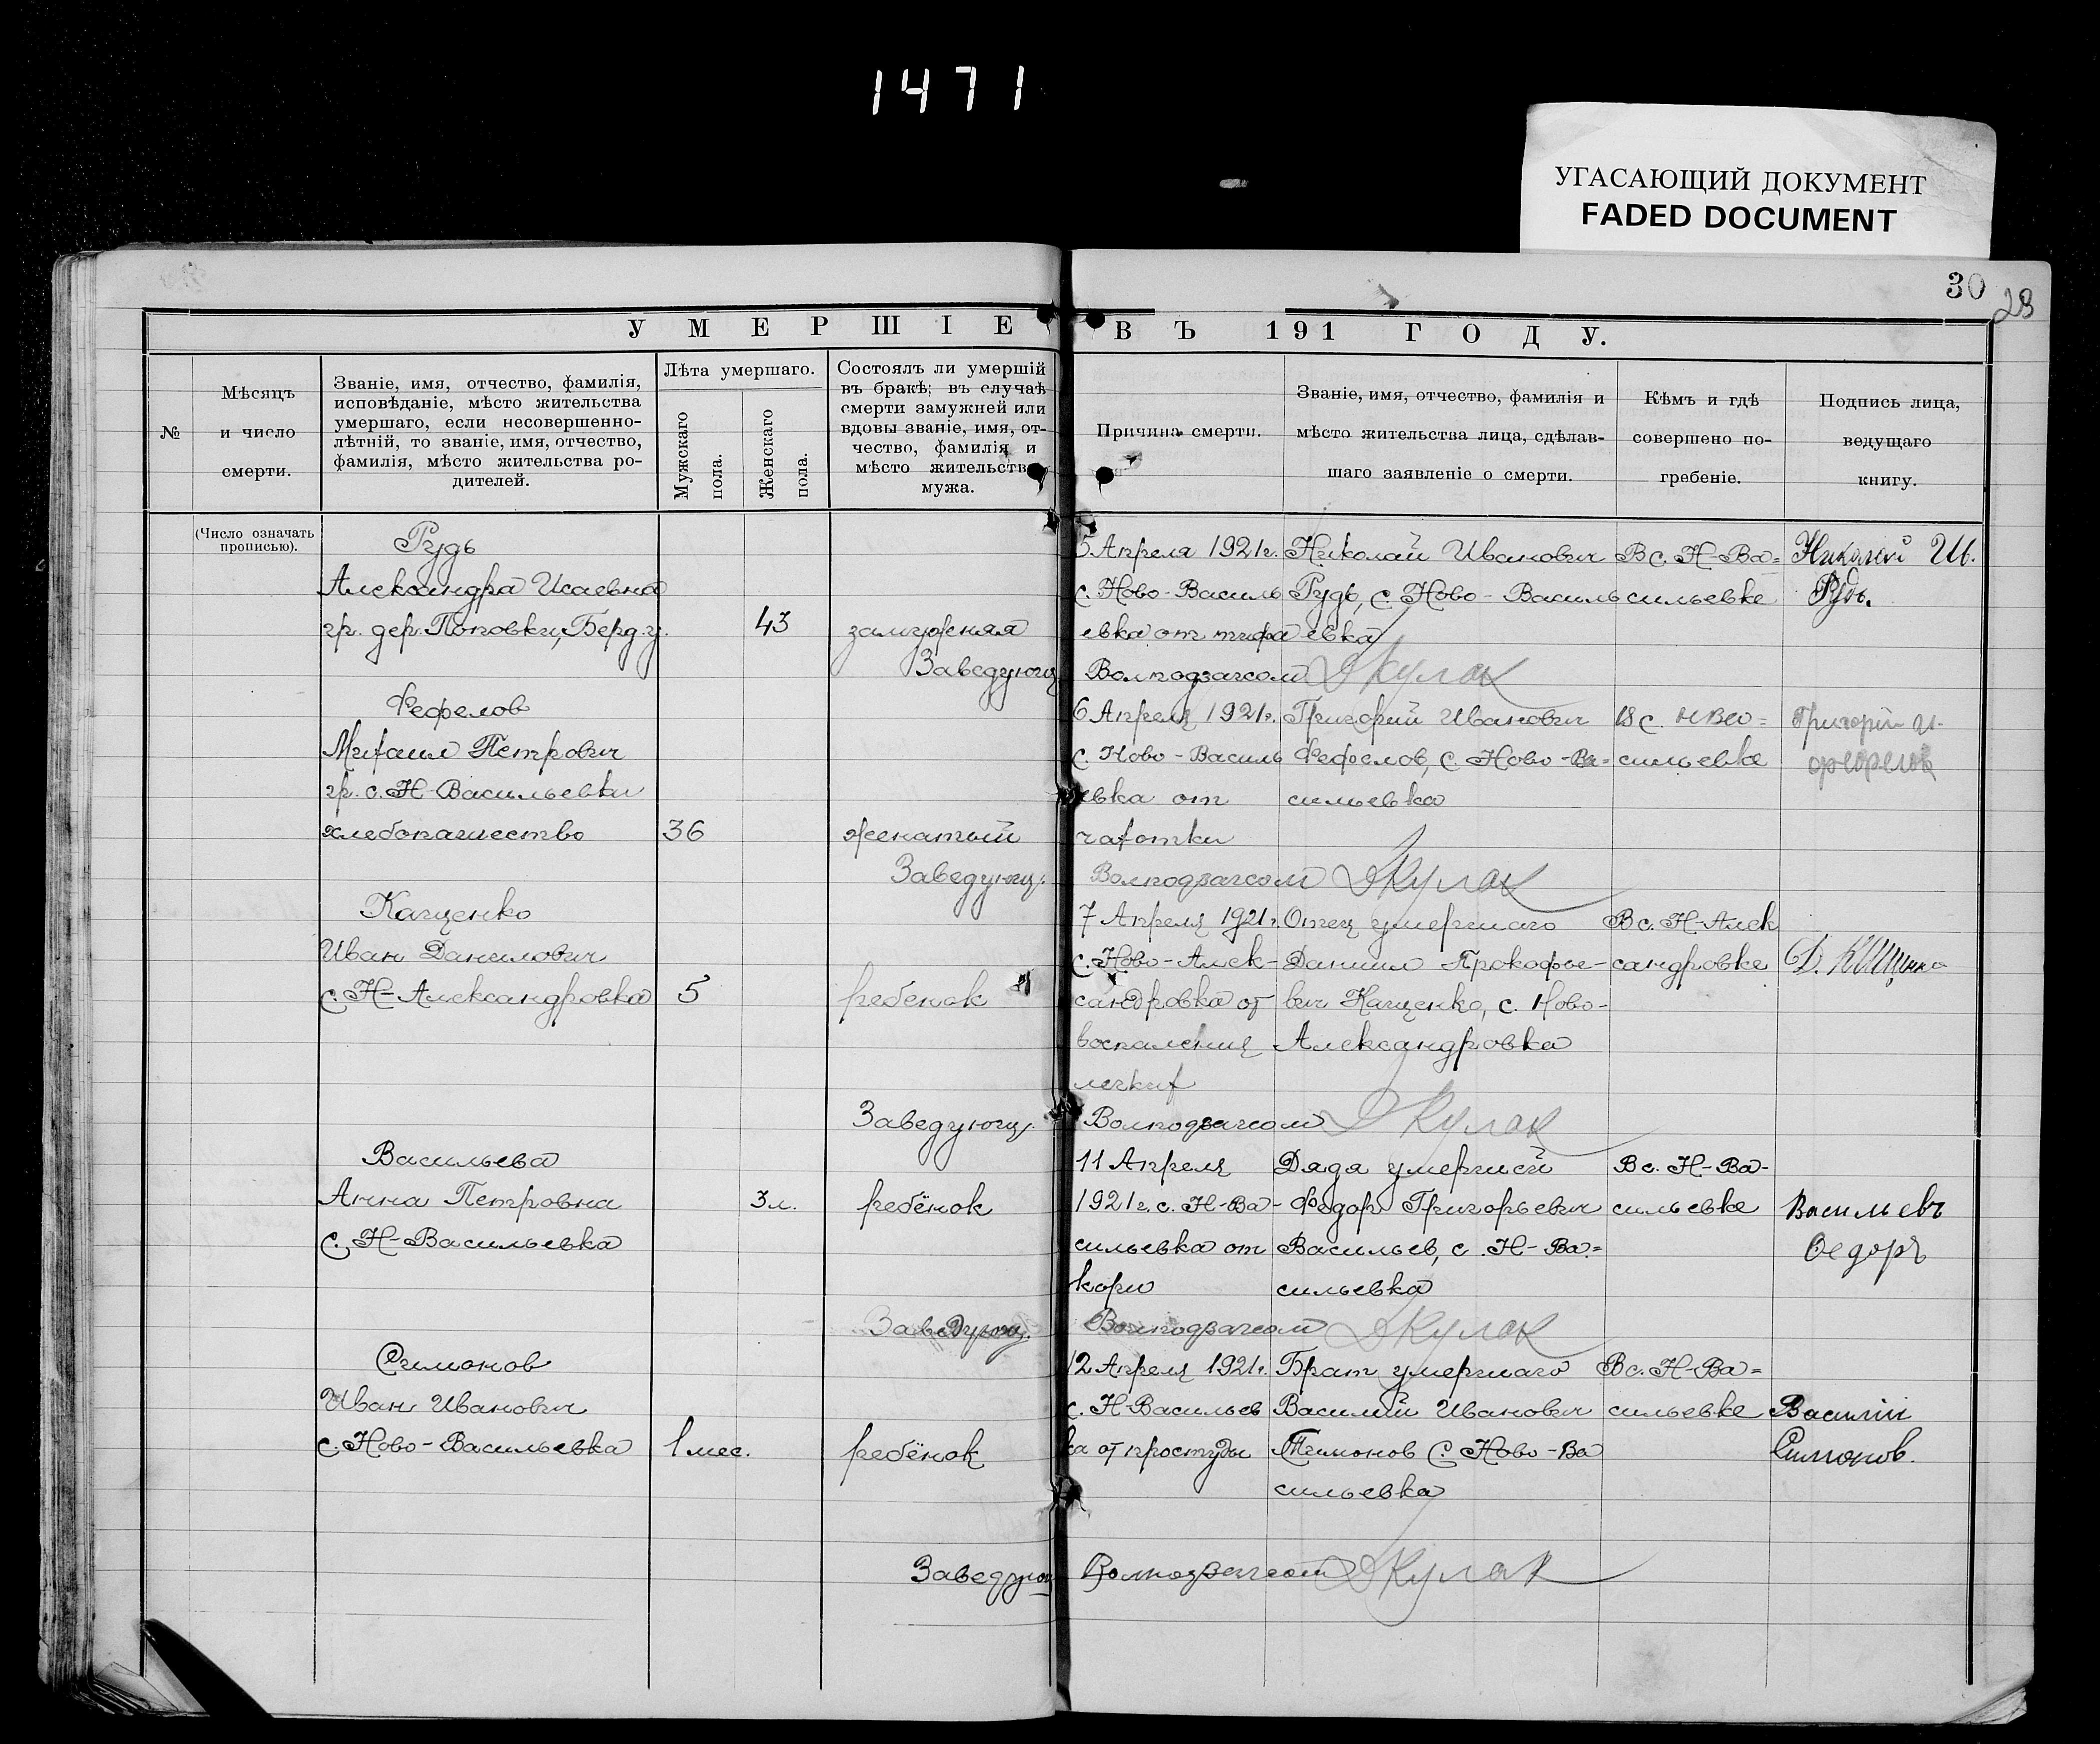 1471
УГАСАЮЩИЙ ДОКУМЕНТ
FADED DOCUMENT
30
УМЕРШІЕ ВЪ 191 ГОДУ.
№
Мѣсяцъ
и число
смерти.
Званіе, имя, отчество, фамилія,
исповѣданіе, мѣсто жительства
умершаго, если несовершенно-
лѣтній, то званіе, имя, отчество,
фамилія, мѣсто жительства ро-
дителей.
Лѣта умершаго.
Мужскаго
пола.
Женскаго
пола.
Состоялъ ли умершій
въ бракѣ; въ случаѣ
смерти замужней или
вдовы званіе, имя, от-
чество, фамилія и
мѣсто жительства
мужа.
Причина смерти.
Званіе, имя, отчество, фамилія и
мѣсто жительства лица, сдѣлав-
шаго заявленіе о смерти.
Кѣмъ и гдѣ
совершено по-
гребеніе.
Подпись лица,
ведущаго
книгу.
(Число означать
прописью).
Рудь
Александра Исаевна
гр. дер. Поповки, Берд. у.
43
замужняя
5 Апреля 1921 г.
с. Ново-Василь
евка от тифа
Николай Иванович
Рудь, с. Ново-Василь
евка
В с. Н-Ва=
сильевке
Николай Ив.
Рудь.
Заведующ Волподзагсом Д Кулак
Фефелов
Михаил Петрович
гр. с. Н-Васильевки
хлебопашество
36
женатый
6 Апреля 1921 г.
с. Ново-Василь
евка от
чахотки
Григорий Иванович
Фефелов, с. Ново-Ва=
сильевка
В с. Н Ва=
сильевке
Григорій И.
Фефелов
Заведующ. Волподзагсом Д Кулак
Кащенко
Иван Данилович
с. Н-Александровка
5
ребенок
7 Апреля 1921 г.
с. Ново-Алек-
сандровка от
воспаления
легких
Отец умершаго
Даниил Прокофье-
вич Кащенко, с. Ново-
Александровка
В с. Н-Алек
сандровке
Д. Кащенко
Заведующ. Волподзагсом Д Кулак
Васильева
Анна Петровна
с. Н-Васильевка
3 л.
ребёнок
11 Апреля
1921 г. с. Н-Ва-
сильевка от
кори
Дядя умершей
Федор Григорьевич
Васильев, с. Н-Ва=
сильевка
В с. Н-Ва-
сильевке
Васильевъ
Ѳедоръ
Заведующ. Волподзагсом Д Кулак
Симонов
Иван Иванович
с. Ново-Васильевка
1 мес.
ребёнок
12 Апреля 1921 г.
с. Н-Васильев
ка от простуды
Брат умершаго
Василий Иванович
Симонов с. Ново-Ва
сильевка
В с. Н-Ва=
сильевке
Василий
Симонов.
Заведующ Волподзагсом Д Кулак